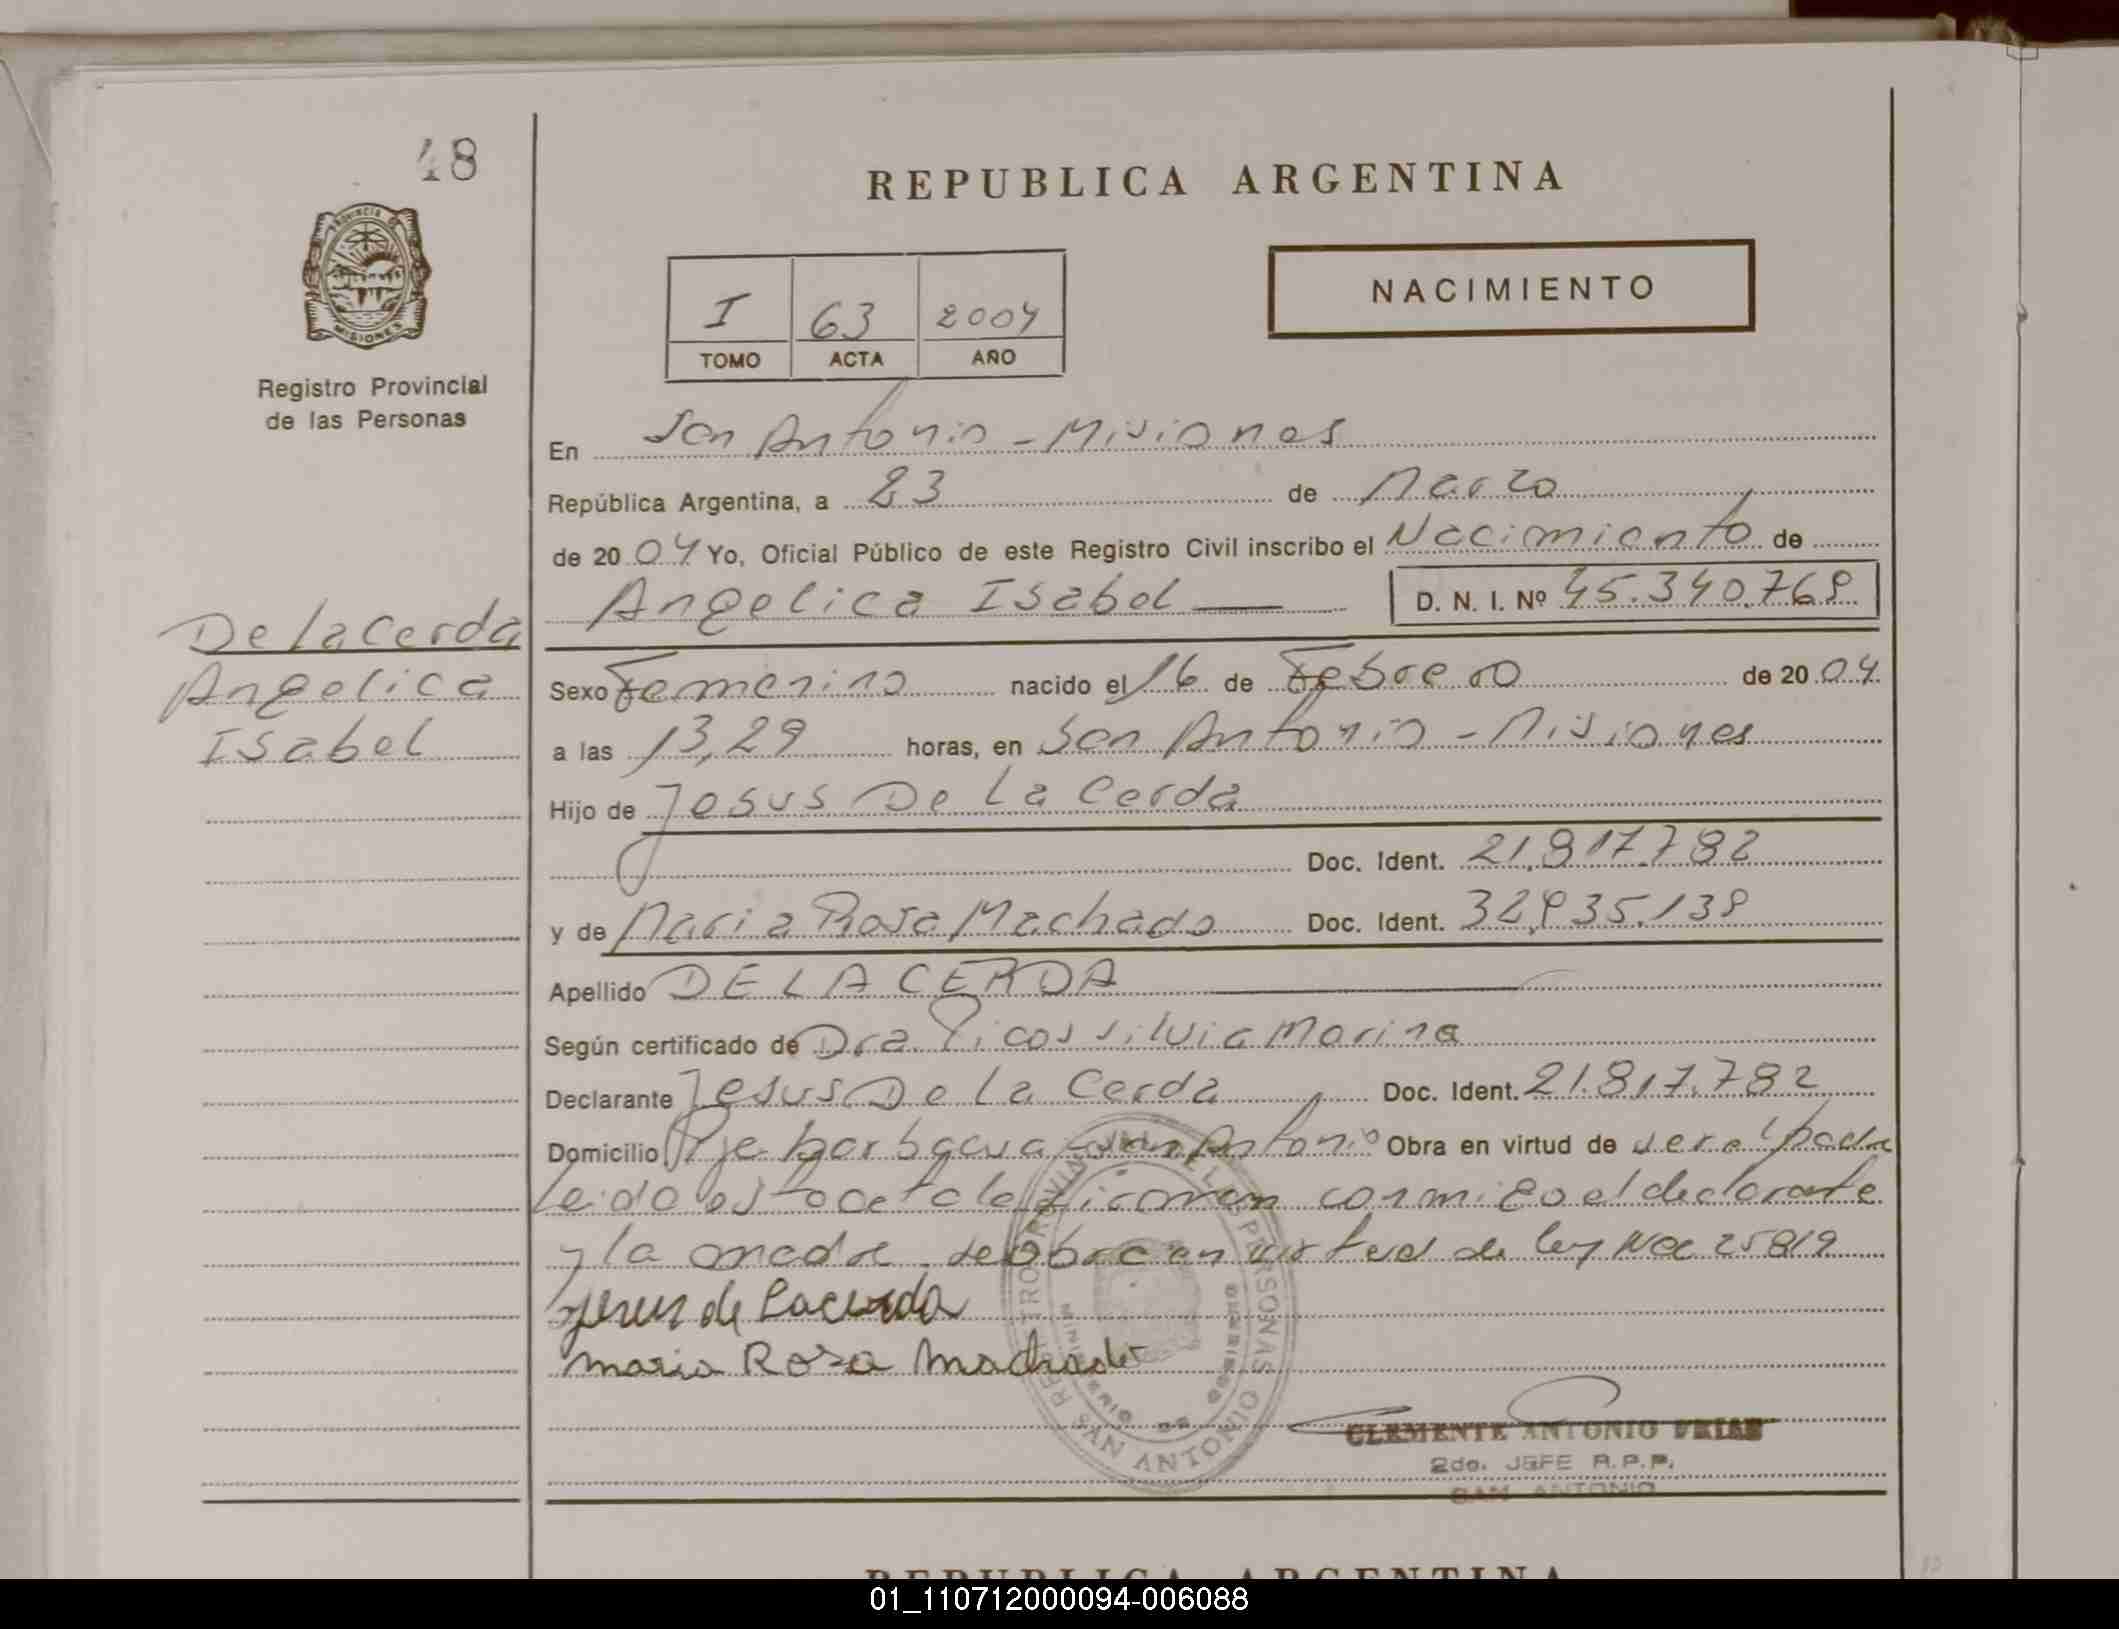 48
REPUBLICA ARGENTINA
NACIMIENTO
I 63 2004
TOMO ACTA AÑO
PROVINCIA DE
MISIONES
Registro Provincial
de las Personas
En San Antonio - Misiones
República Argentina, a 23 de Marzo
de 2004 Yo, Oficial Público de este Registro Civil inscribo el Nacimiento de
Angelica Isabel D. N. I. Nº 45.340.768
De la Cerda
Angelica
Isabel
Sexo Femenino nacido el 16 de Febrero de 2004
a las 13,29 horas, en San Antonio - Misiones
Hijo de Jesus De La Cerda
Doc. Ident. 21.817.782
y de Maria Rosa Machado Doc. Ident. 32.935.138
Apellido DE LA CERDA
Según certificado de Dra Picos Silvia Marina
Declarante Jesus De la Cerda Doc. Ident. 21.817.782
Domicilio San Antonio Obra en virtud de ser el padre
Leido esta acta la firman conmigo el declarante
y la madre. se obra en virtud de ley Nac 25819
Jesus de Lacerda
maria Rosa Machado
REGISTRO PROVINCIAL DE LAS PERSONAS
MINISTERIO DE GOBIERNO
SAN ANTONIO
CLEMENTE ANTONIO FRIAS
2do. JEFE R.P.P.
SAN ANTONIO
REPUBLICA ARGENTINA
01_110712000094-006088